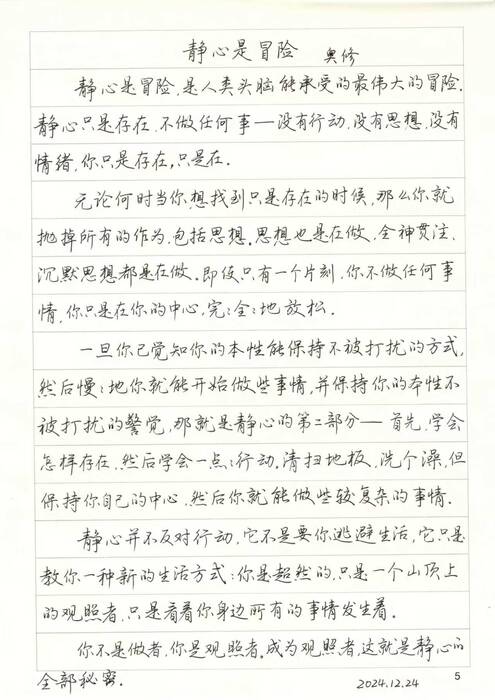 静心是冒险 奥修
静心是冒险,是人类头脑能承受的最伟大的冒险.
静心只是存在,不做任何事—没有行动,没有思想,没有
情绪,你只是存在,只是在.
无论何时当你想找到只是存在的时候,那么你就
抛掉所有的作为,包括思想.思想也是在做,全神贯注、
沉默思想都是在做.即使只有一个片刻,你不做任何事
情,你只是在你的中心,完:全:地放松.
一旦你已觉知你的本性能保持不被打扰的方式,
然后慢:地你就能开始做些事情,并保持你的本性不
被打扰的警觉,那就是静心的第二部分—首先,学会
怎样存在,然后学会一点:行动.清扫地板,洗个澡,但
保持你自己的中心.然后你就能做些较复杂的事情.
静心并不反对行动,它不是要你逃避生活,它只是
教你一种新的生活方式:你是超然的,只是一个山顶上
的观照者,只是看着你身边所有的事情发生着.
你不是做者,你是观照者.成为观照者,这就是静心的
全部秘密.
2024.12.24
5